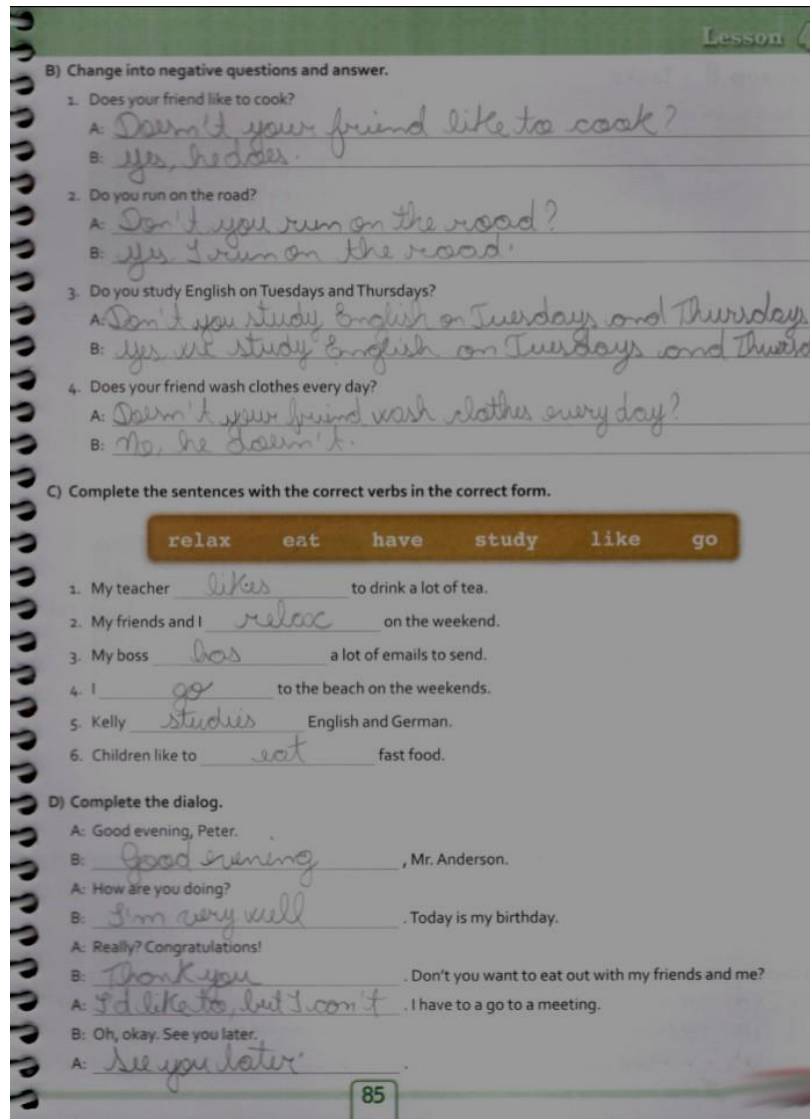 Lesson
B) Change into negative questions and answer.
1. Does your friend like to cook?
A: Doesn't your friend like to cook?
B: Yes, he does.
2. Do you run on the road?
A: Don't you run on the road?
B: Yes I run on the road.
3. Do you study English on Tuesdays and Thursdays?
A: Don't you study English on Tuesdays and Thursdays
B: Yes we study English on Tuesdays and Thursd
4. Does your friend wash clothes every day?
A: Doesn't your friend wash clothes every day?
B: No, he doesn't.
C) Complete the sentences with the correct verbs in the correct form.
relax eat have study like go
1. My teacher likes to drink a lot of tea.
2. My friends and I relax on the weekend.
3. My boss has a lot of emails to send.
4. I go to the beach on the weekends.
5. Kelly studies English and German.
6. Children like to eat fast food.
D) Complete the dialog.
A: Good evening, Peter.
B: Good evening, Mr. Anderson.
A: How are you doing?
B: I'm very well. Today is my birthday.
A: Really? Congratulations!
B: Thank you. Don't you want to eat out with my friends and me?
A: I'd like to, but I can't. I have to a go to a meeting.
B: Oh, okay. See you later.
A: See you later.
85